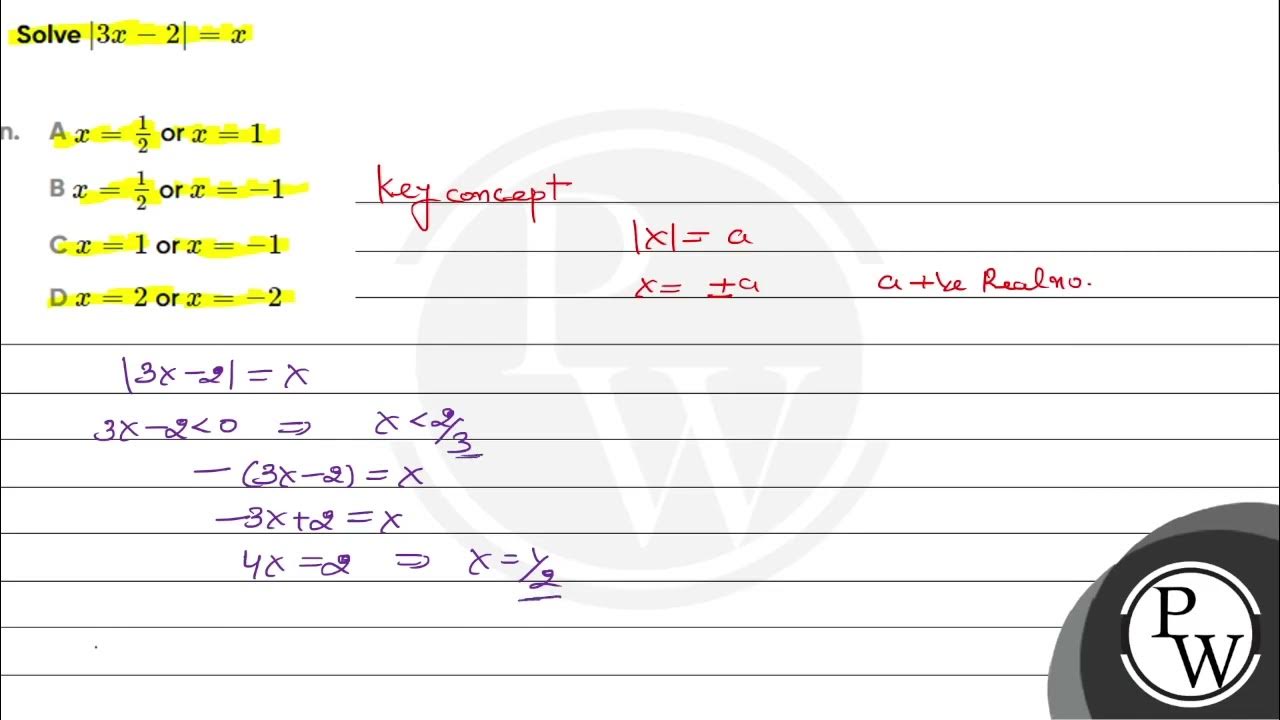 Solve |3x − 2| = x
n. A x = 1/2 or x = 1
B x = 1/2 or x = −1
C x = 1 or x = −1
D x = 2 or x = −2
Key concept
|x| = a
x = ±a a +ve Real no.
|3x−2| = x
3x−2<0 ⇒ x<2/3
−(3x−2) = x
−3x+2 = x
4x = 2 ⇒ x = 1/2
PW
PW